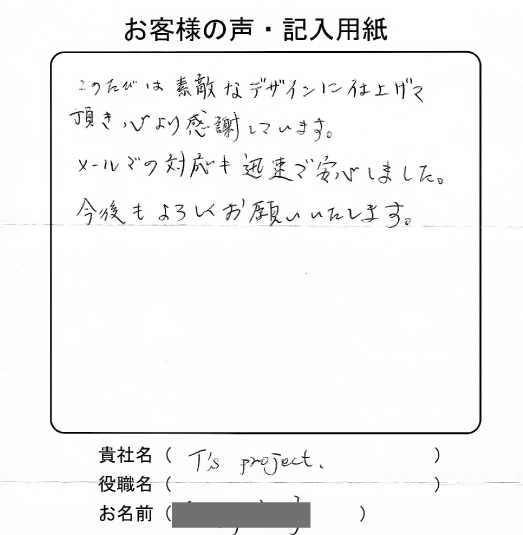 お客様の声・記入用紙
このたびは素敵なデザインに仕上げて
頂き心より感謝しています。
メールでの対応も迅速で安心しました。
今後もよろしくお願いいたします。
貴社名（ T's project. ）
役職名（ ）
お名前（ ）